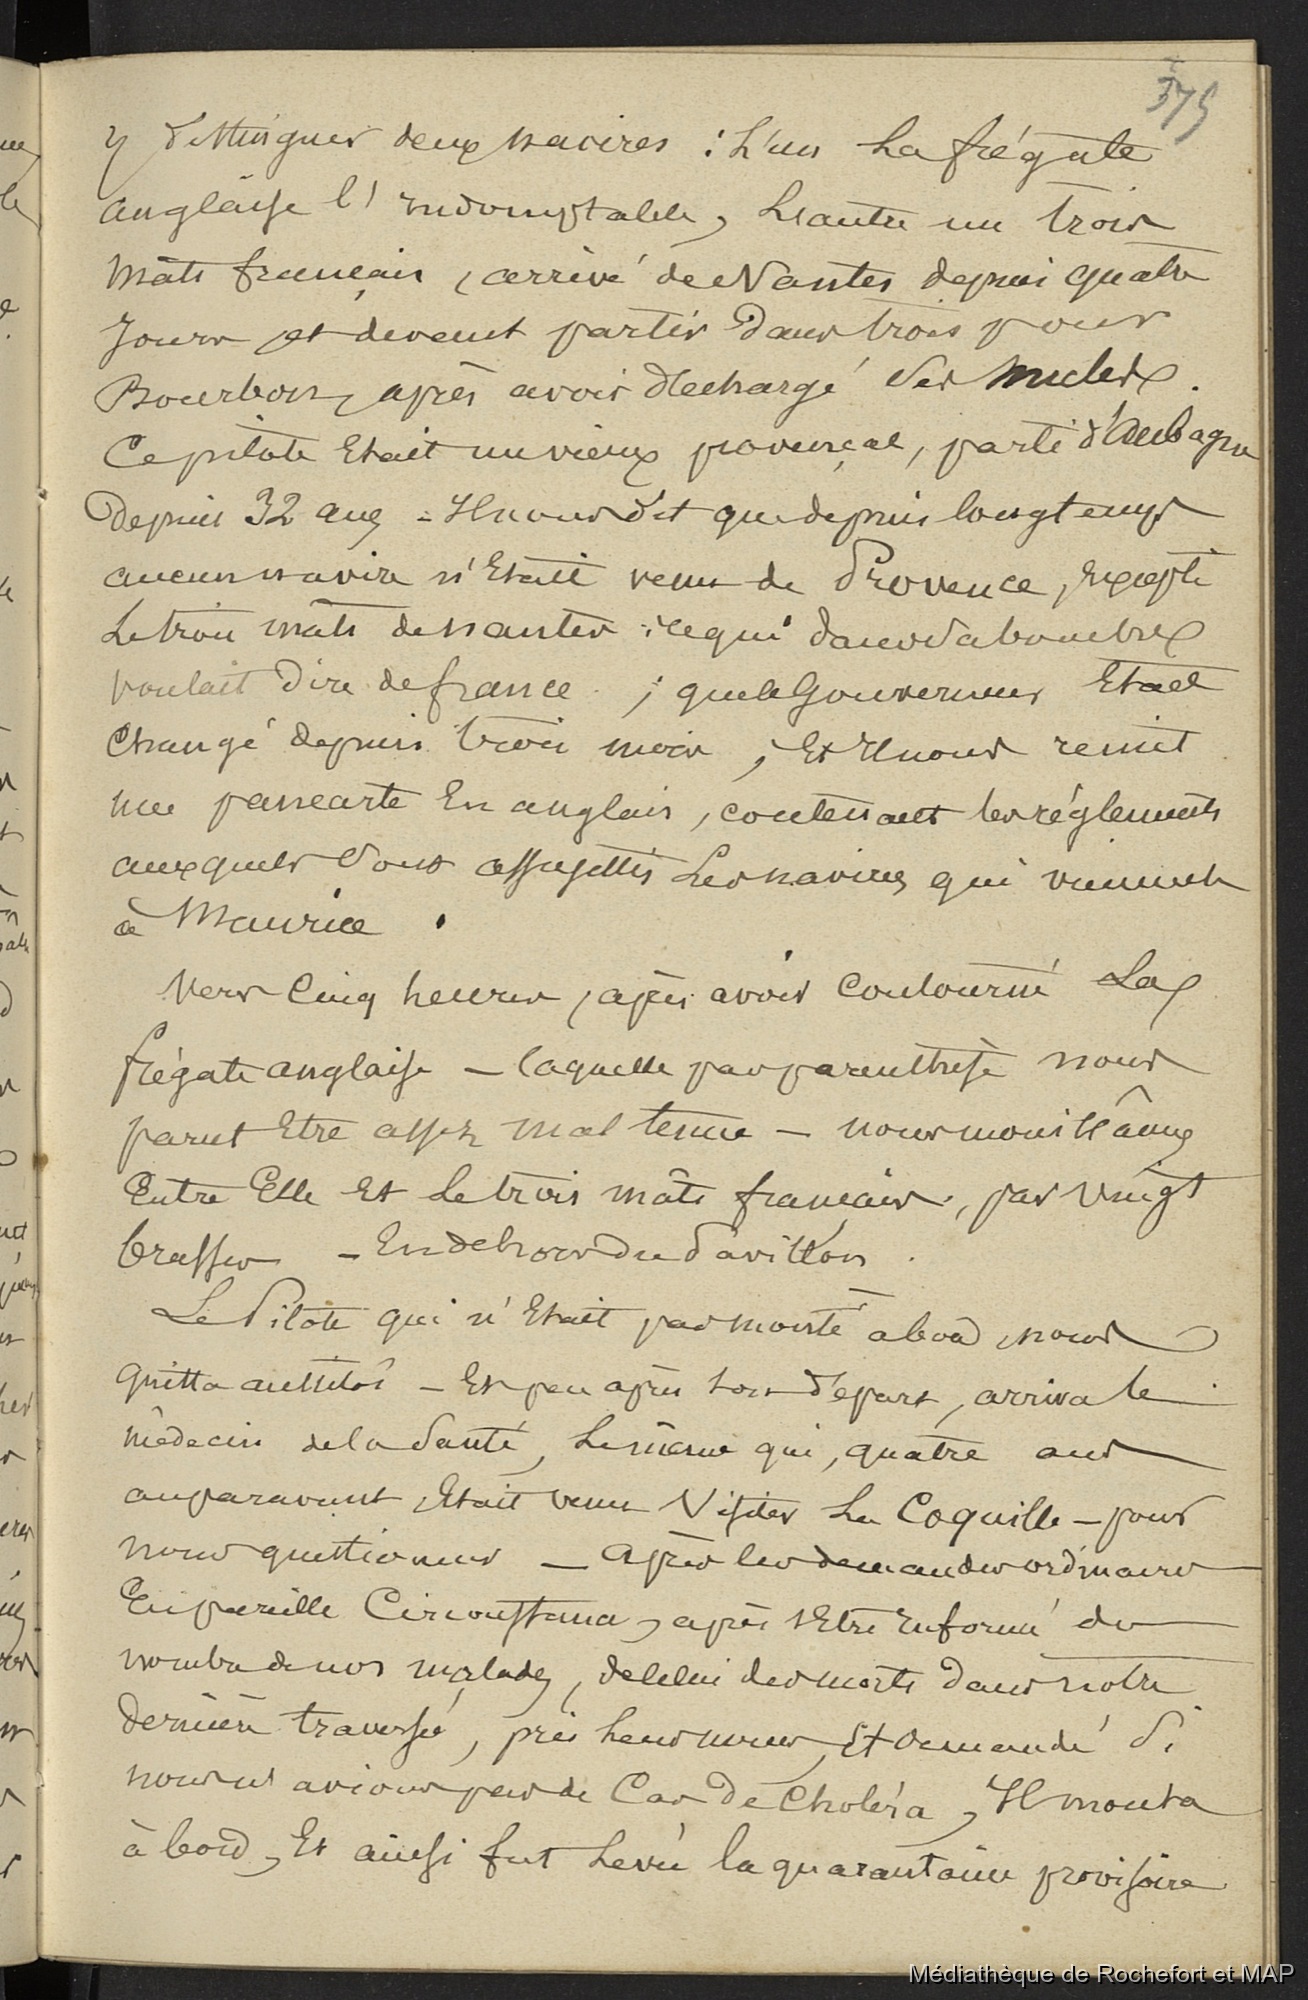 375
y distinguer deux navires : L'un La frégate
anglaise l'indomptable, L'autre un trois
mâts français, arrivé de Nantes depuis quatre
jours et devant partir dans trois pour
Bourbon, après avoir déchargé des mulets.
Ce pilote Etait un vieux provençal, parti d'Aubagne
depuis 32 ans - Il nous dit que depuis longtemps
aucun navire n'Etait venu de Provence, Excepté
Le trois mâts de nantes ; ce qui dans sa bouche
voulait dire de france ; que le Gouverneur Etait
Changé depuis trois mois, Et Il nous remit
une pancarte En anglais, contenant les réglements
auxquels sont assujettis Les navires qui viennent
à Maurice.
Vers Cinq heures, après avoir Contourné La
frégate anglaise — laquelle par parenthèse nous
parut Etre assez mal tenue — nous mouillâmes
Entre Elle Et Le trois mâts français, par vingt
brasses - En dehors du Pavillon.
Le Pilote qui n'Etait pas monté à bord, nous
quitta aussitôt - Et peu après son départ, arriva le
médecin de la Santé, Le même qui, quatre ans
auparavant, Etait venu Visiter La Coquille - pour
nous questionner — Après les demandes ordinaires
En pareille Circonstance, après s'Etre Informé du
nombre de nos malades, de celui des morts dans notre
dernière traversée, pris leurs noms, Et demandé Si
nous n'avions pas de Cas de Choléra, Il monta
à bord, Et ainsi fut Levée la quarantaine provisoire
Médiathèque de Rochefort et MAP